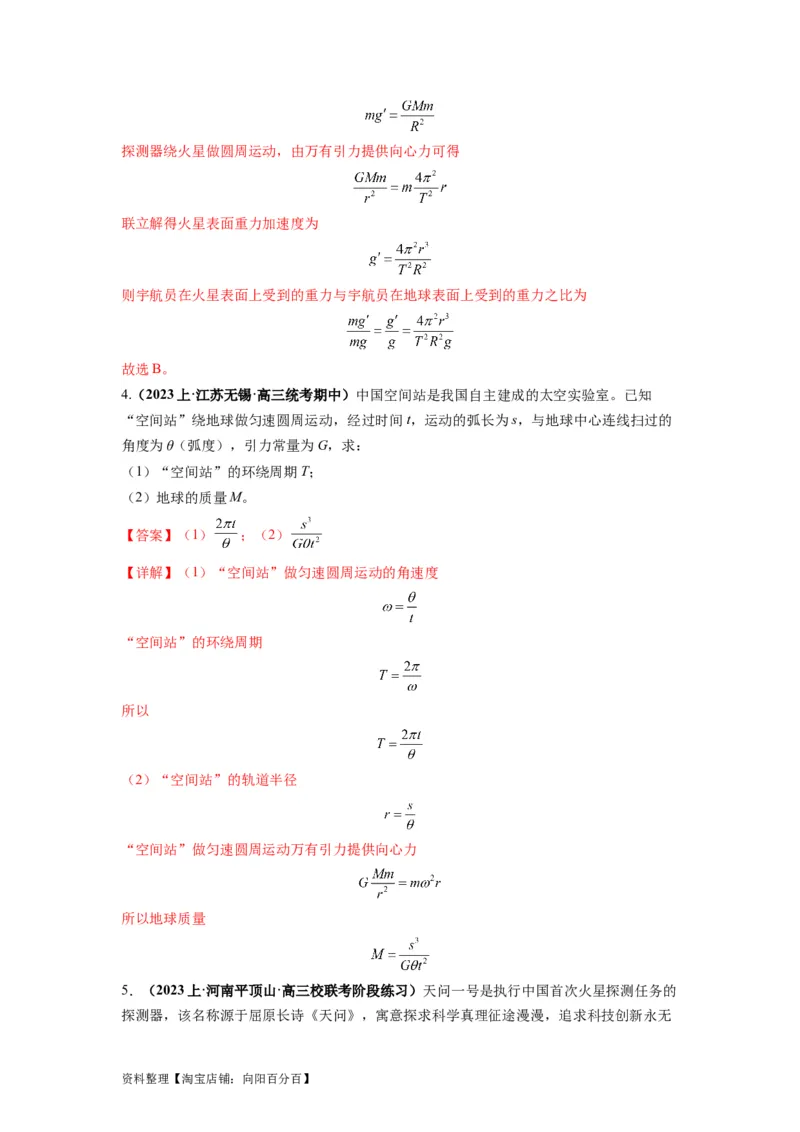 mg′ = GMm/R²
探测器绕火星做圆周运动，由万有引力提供向心力可得
GMm/r² = m 4π²/T² r
联立解得火星表面重力加速度为
g′ = 4π²r³/T²R²
则宇航员在火星表面上受到的重力与宇航员在地球表面上受到的重力之比为
mg′/mg = g′/g = 4π²r³/T²R²g
故选B。
4.（2023上·江苏无锡·高三统考期中）中国空间站是我国自主建成的太空实验室。已知
“空间站”绕地球做匀速圆周运动，经过时间t，运动的弧长为s，与地球中心连线扫过的
角度为θ（弧度），引力常量为G，求：
（1）“空间站”的环绕周期T；
（2）地球的质量M。
【答案】（1）2πt/θ；（2）s³/Gθt²
【详解】（1）“空间站”做匀速圆周运动的角速度
ω = θ/t
“空间站”的环绕周期
T = 2π/ω
所以
T = 2πt/θ
（2）“空间站”的轨道半径
r = s/θ
“空间站”做匀速圆周运动万有引力提供向心力
G Mm/r² = mω²r
所以地球质量
M = s³/Gθt²
5．（2023上·河南平顶山·高三校联考阶段练习）天问一号是执行中国首次火星探测任务的
探测器，该名称源于屈原长诗《天问》，寓意探求科学真理征途漫漫，追求科技创新永无
资料整理【淘宝店铺：向阳百分百】